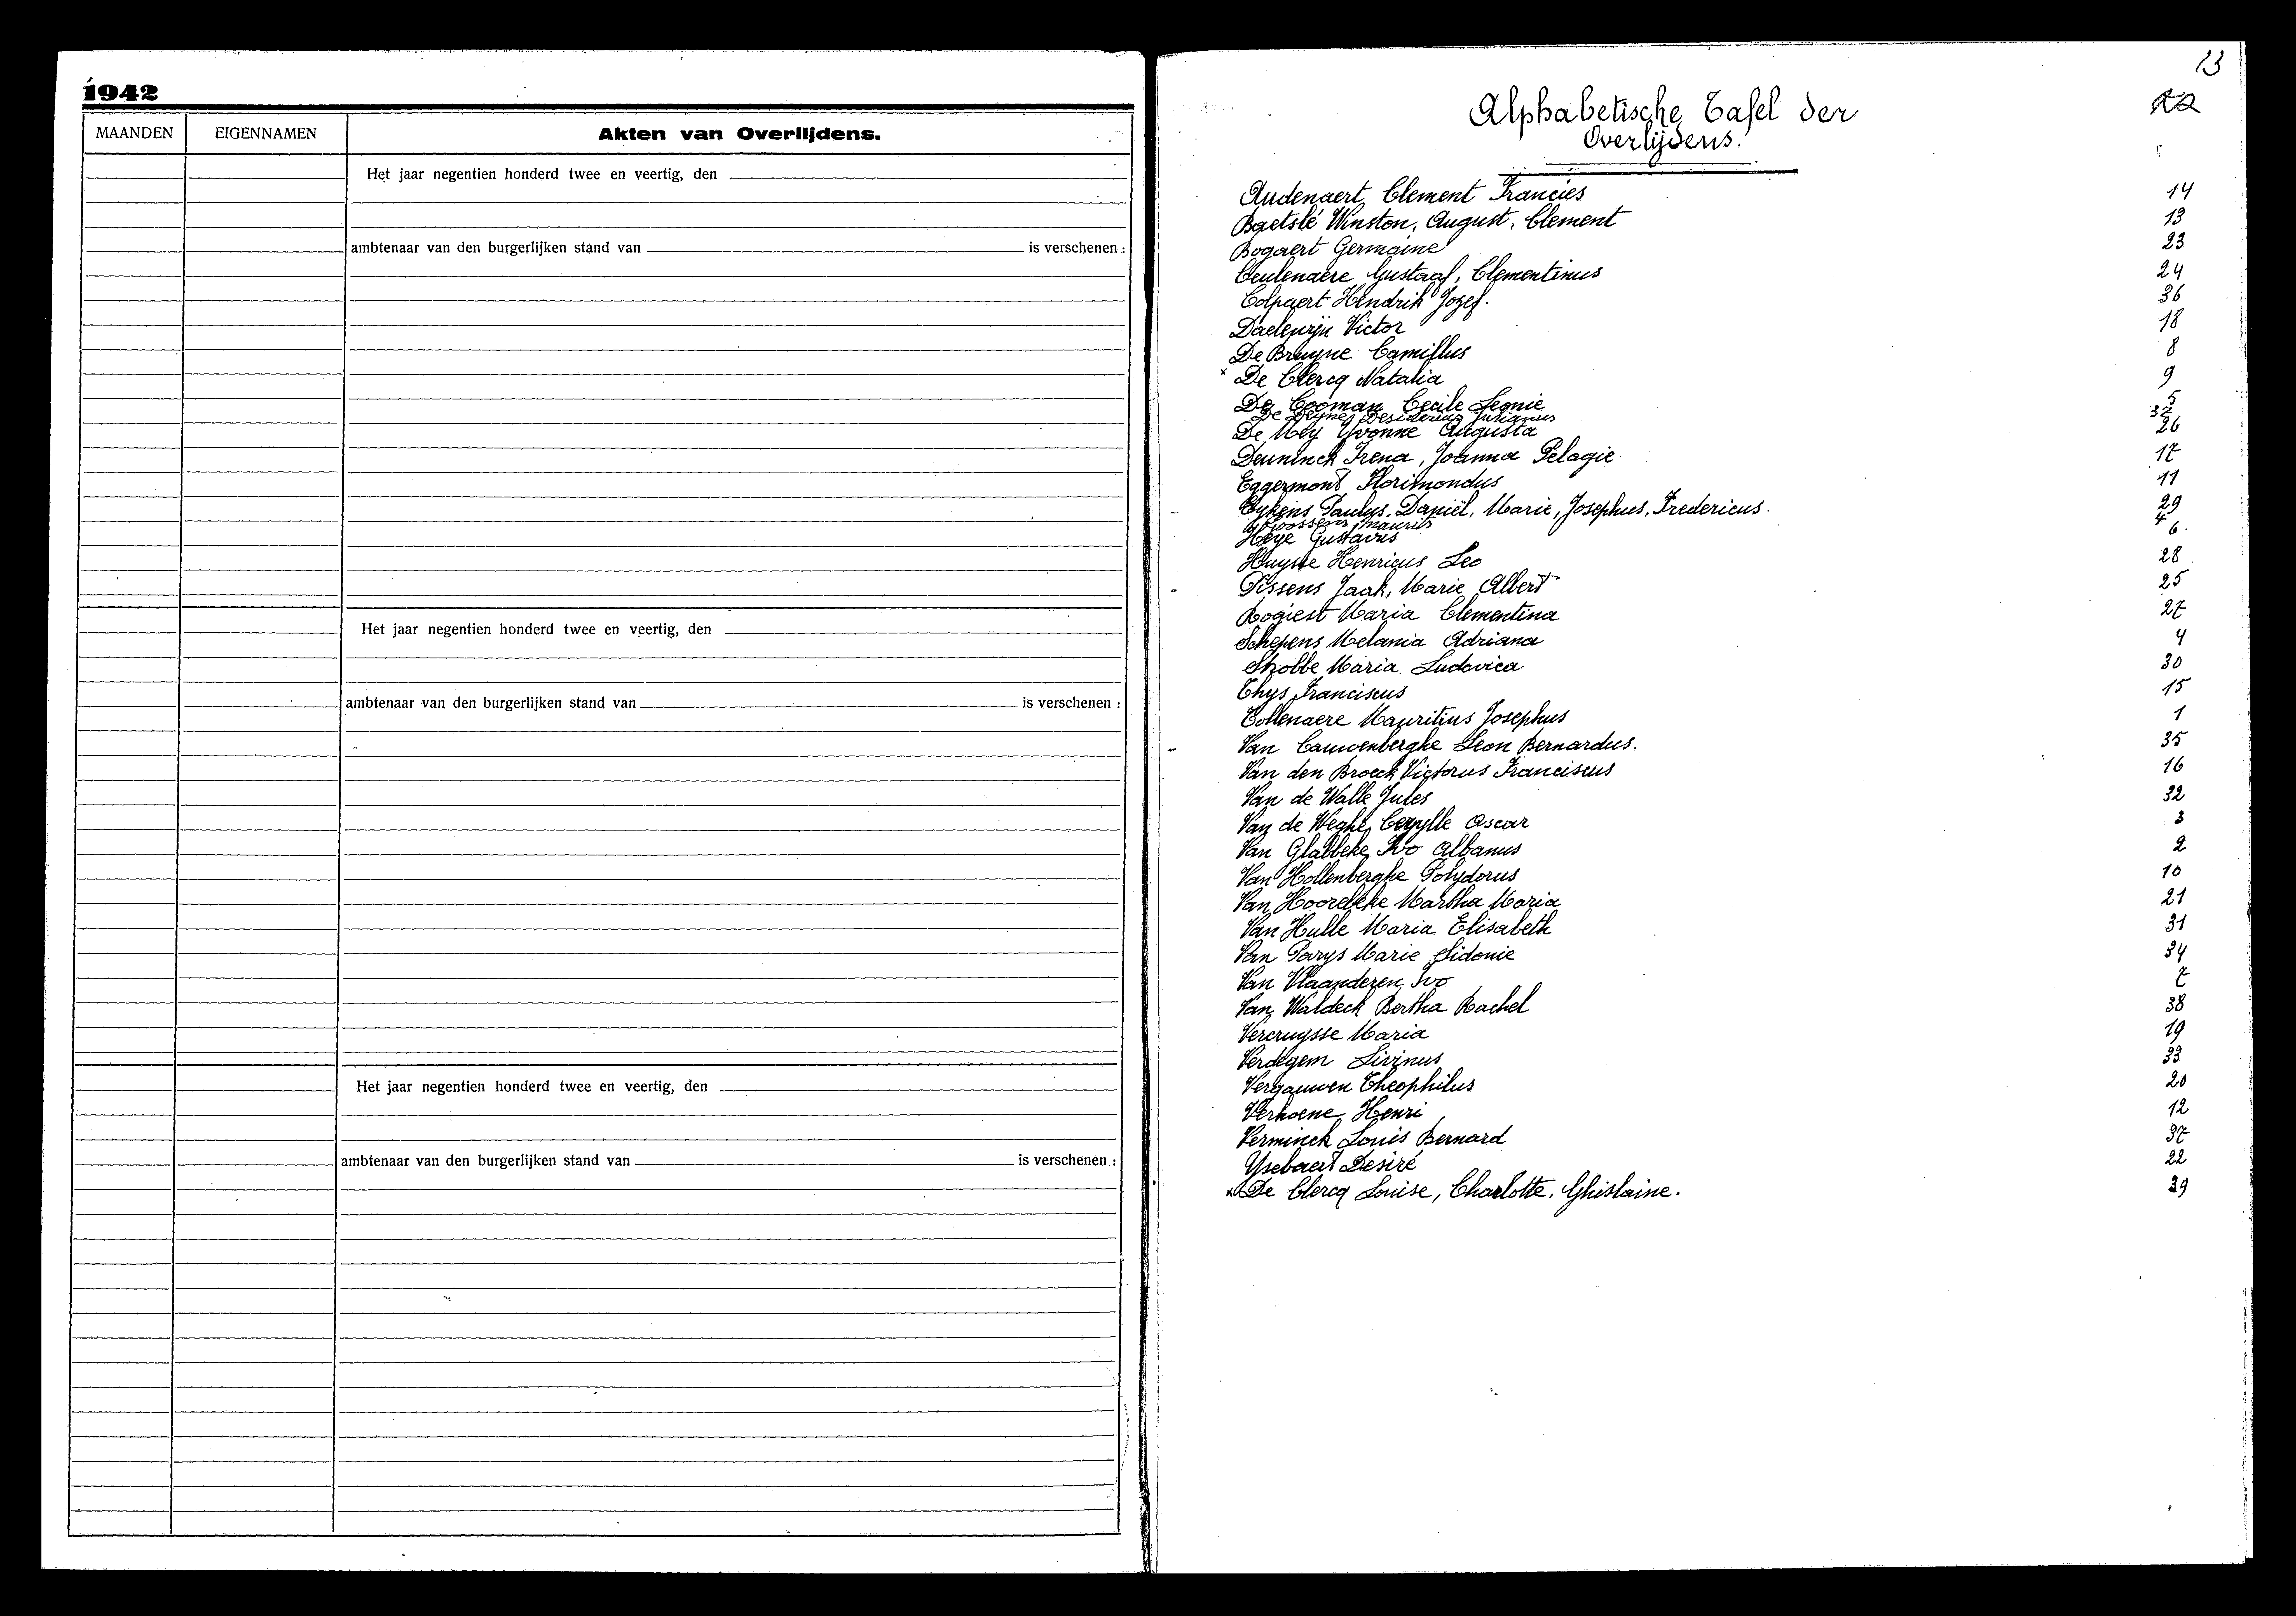 1942
MAANDEN EIGENNAMEN Akten van Overlijdens.
Het jaar negentien honderd twee en veertig, den
ambtenaar van den burgerlijken stand van is verschenen :
Het jaar negentien honderd twee en veertig, den
ambtenaar van den burgerlijken stand van is verschenen :
Het jaar negentien honderd twee en veertig, den
ambtenaar van den burgerlijken stand van is verschenen :
13
Alphabetische Tafel der
Overlijdens.
Audenaert Clement Francies 14
Baetslé Winston, August, Clement 13
Bogaert Germaine 23
Ceulenaere Gustaaf, Clementinus 24
Colpaert Hendrik Jozef. 36
Daelewijn Victor 18
De Bruyne Camillus 8
x De Clercq Natalia 9
De Cooman Cecile Leonie 5
De Deyne Desiderius Julianus
De Mey Yvonne Augusta 26
Deuninck Irena, Joanna Pelagie 17
Eggermont Florimondus 11
Eykens Paulus, Daniël, Marie, Josephus, Fredericus. 29
Goossens Mauris
Heye Gustavus 6
Huyste Henricus Leo 28
Pissens Jaak, Marie Albert 25
Rogiest Maria Clementina 27
Schepens Melania Adriana 4
Stzobbe Maria Ludovica 30
Thys Franciscus 15
Tollenaere Mauritius Josephus 1
Van Cauwenberghe Leon Bernardus. 35
Van den Broeck Victorus Franciscus 16
Van de Walle Jules 32
Van de Weghe Oscar 3
Van Glabbeke Ivo Albanus 2
Van Hollenberghe Polydorus 10
Van Hoordeke Martha Maria 21
Van Hulle Maria Elisabeth 31
Van Parys Marie Sidonie 34
Van Vlaanderen Ivo 7
Van Waldeck Bertha Rachel 38
Vercruysse Maria 19
Verdegem Livinus 33
Vergauwen Theophilus 20
Verhoene Henri 12
Verminck Louis Bernard 37
Ysebaert Desiré 22
x De Clercq Louise, Charlotte, Ghislaine. 39